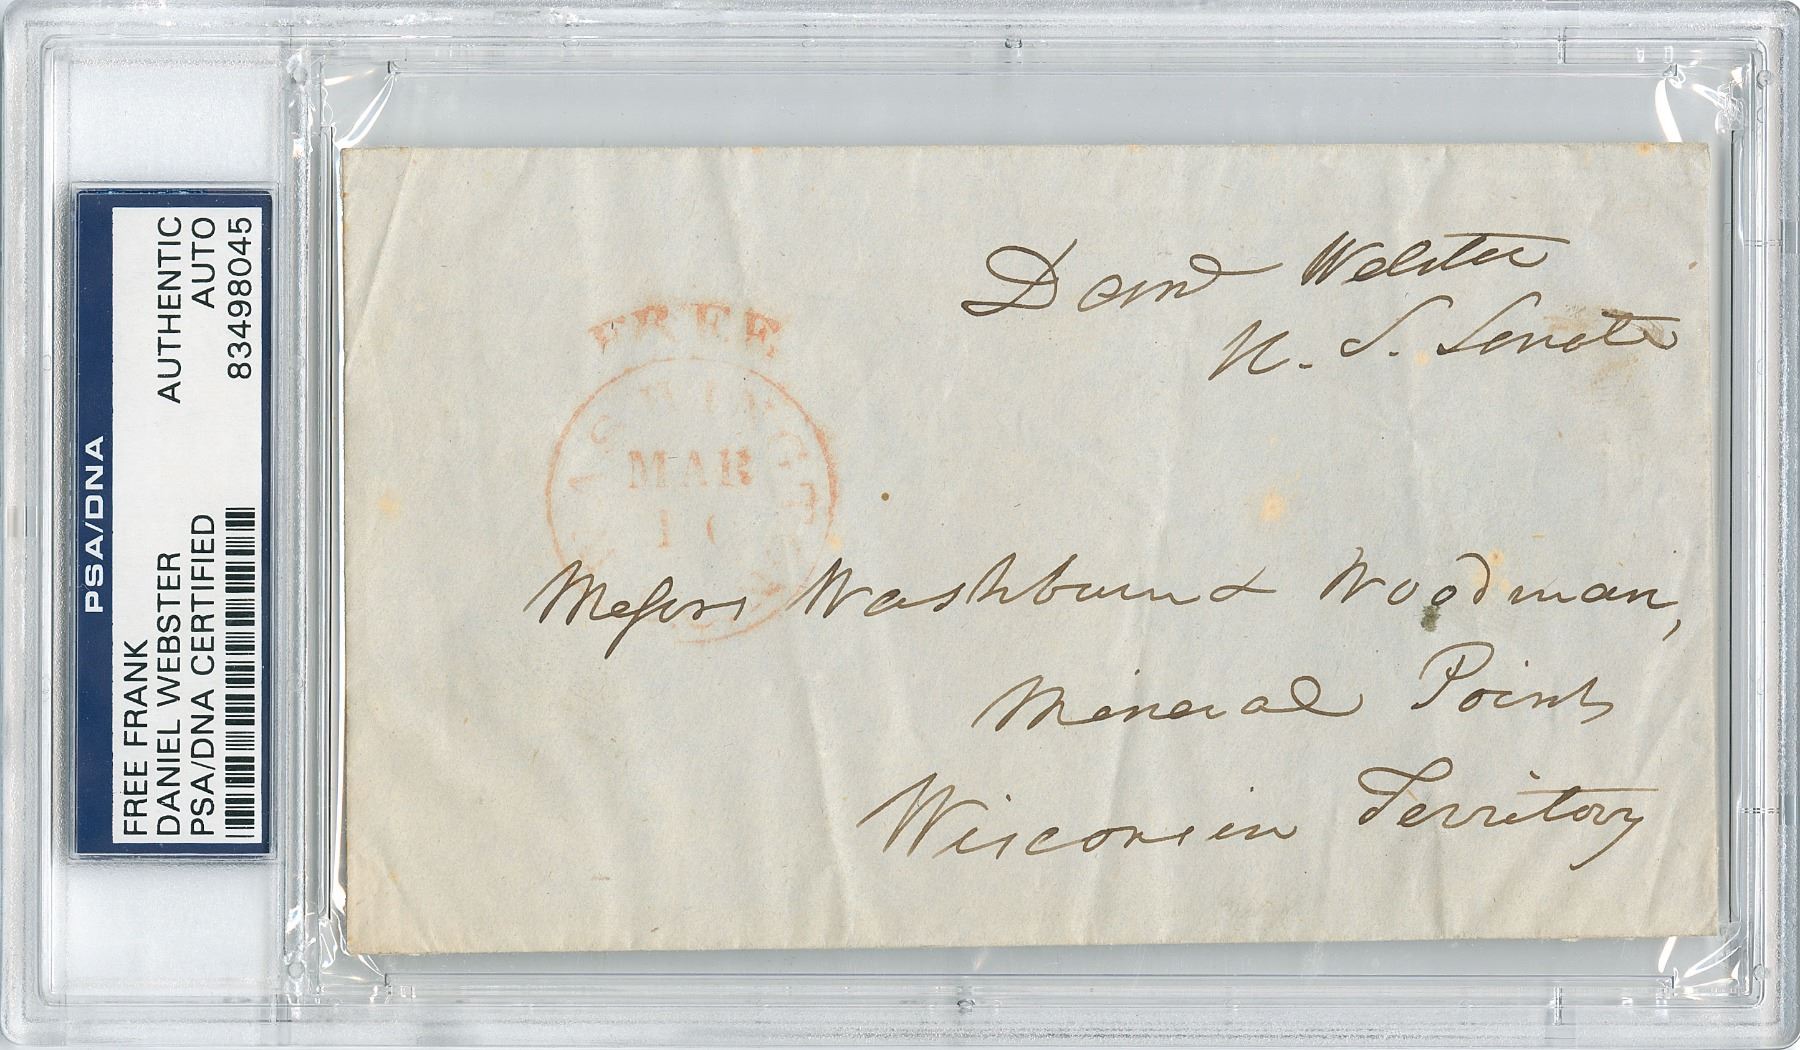 PSA/DNA
FREE FRANK
DANIEL WEBSTER
PSA/DNA CERTIFIED
AUTHENTIC
AUTO
83498045
FREE
WASHINGTON
MAR
Danl Webster
U. S. Senate
Messrs Washburn & Woodman,
Mineral Point
Wisconsin Territory